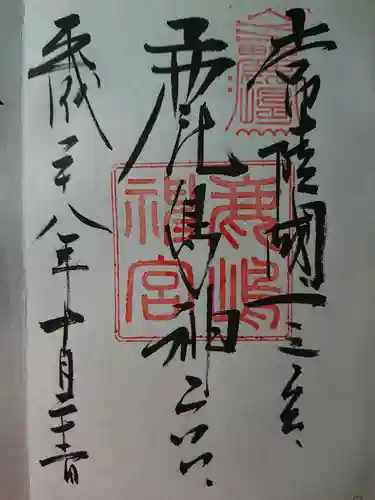 常陸國一之宮
鹿島神宮
平成二十八年十月二十二日
鹿嶋
神宮